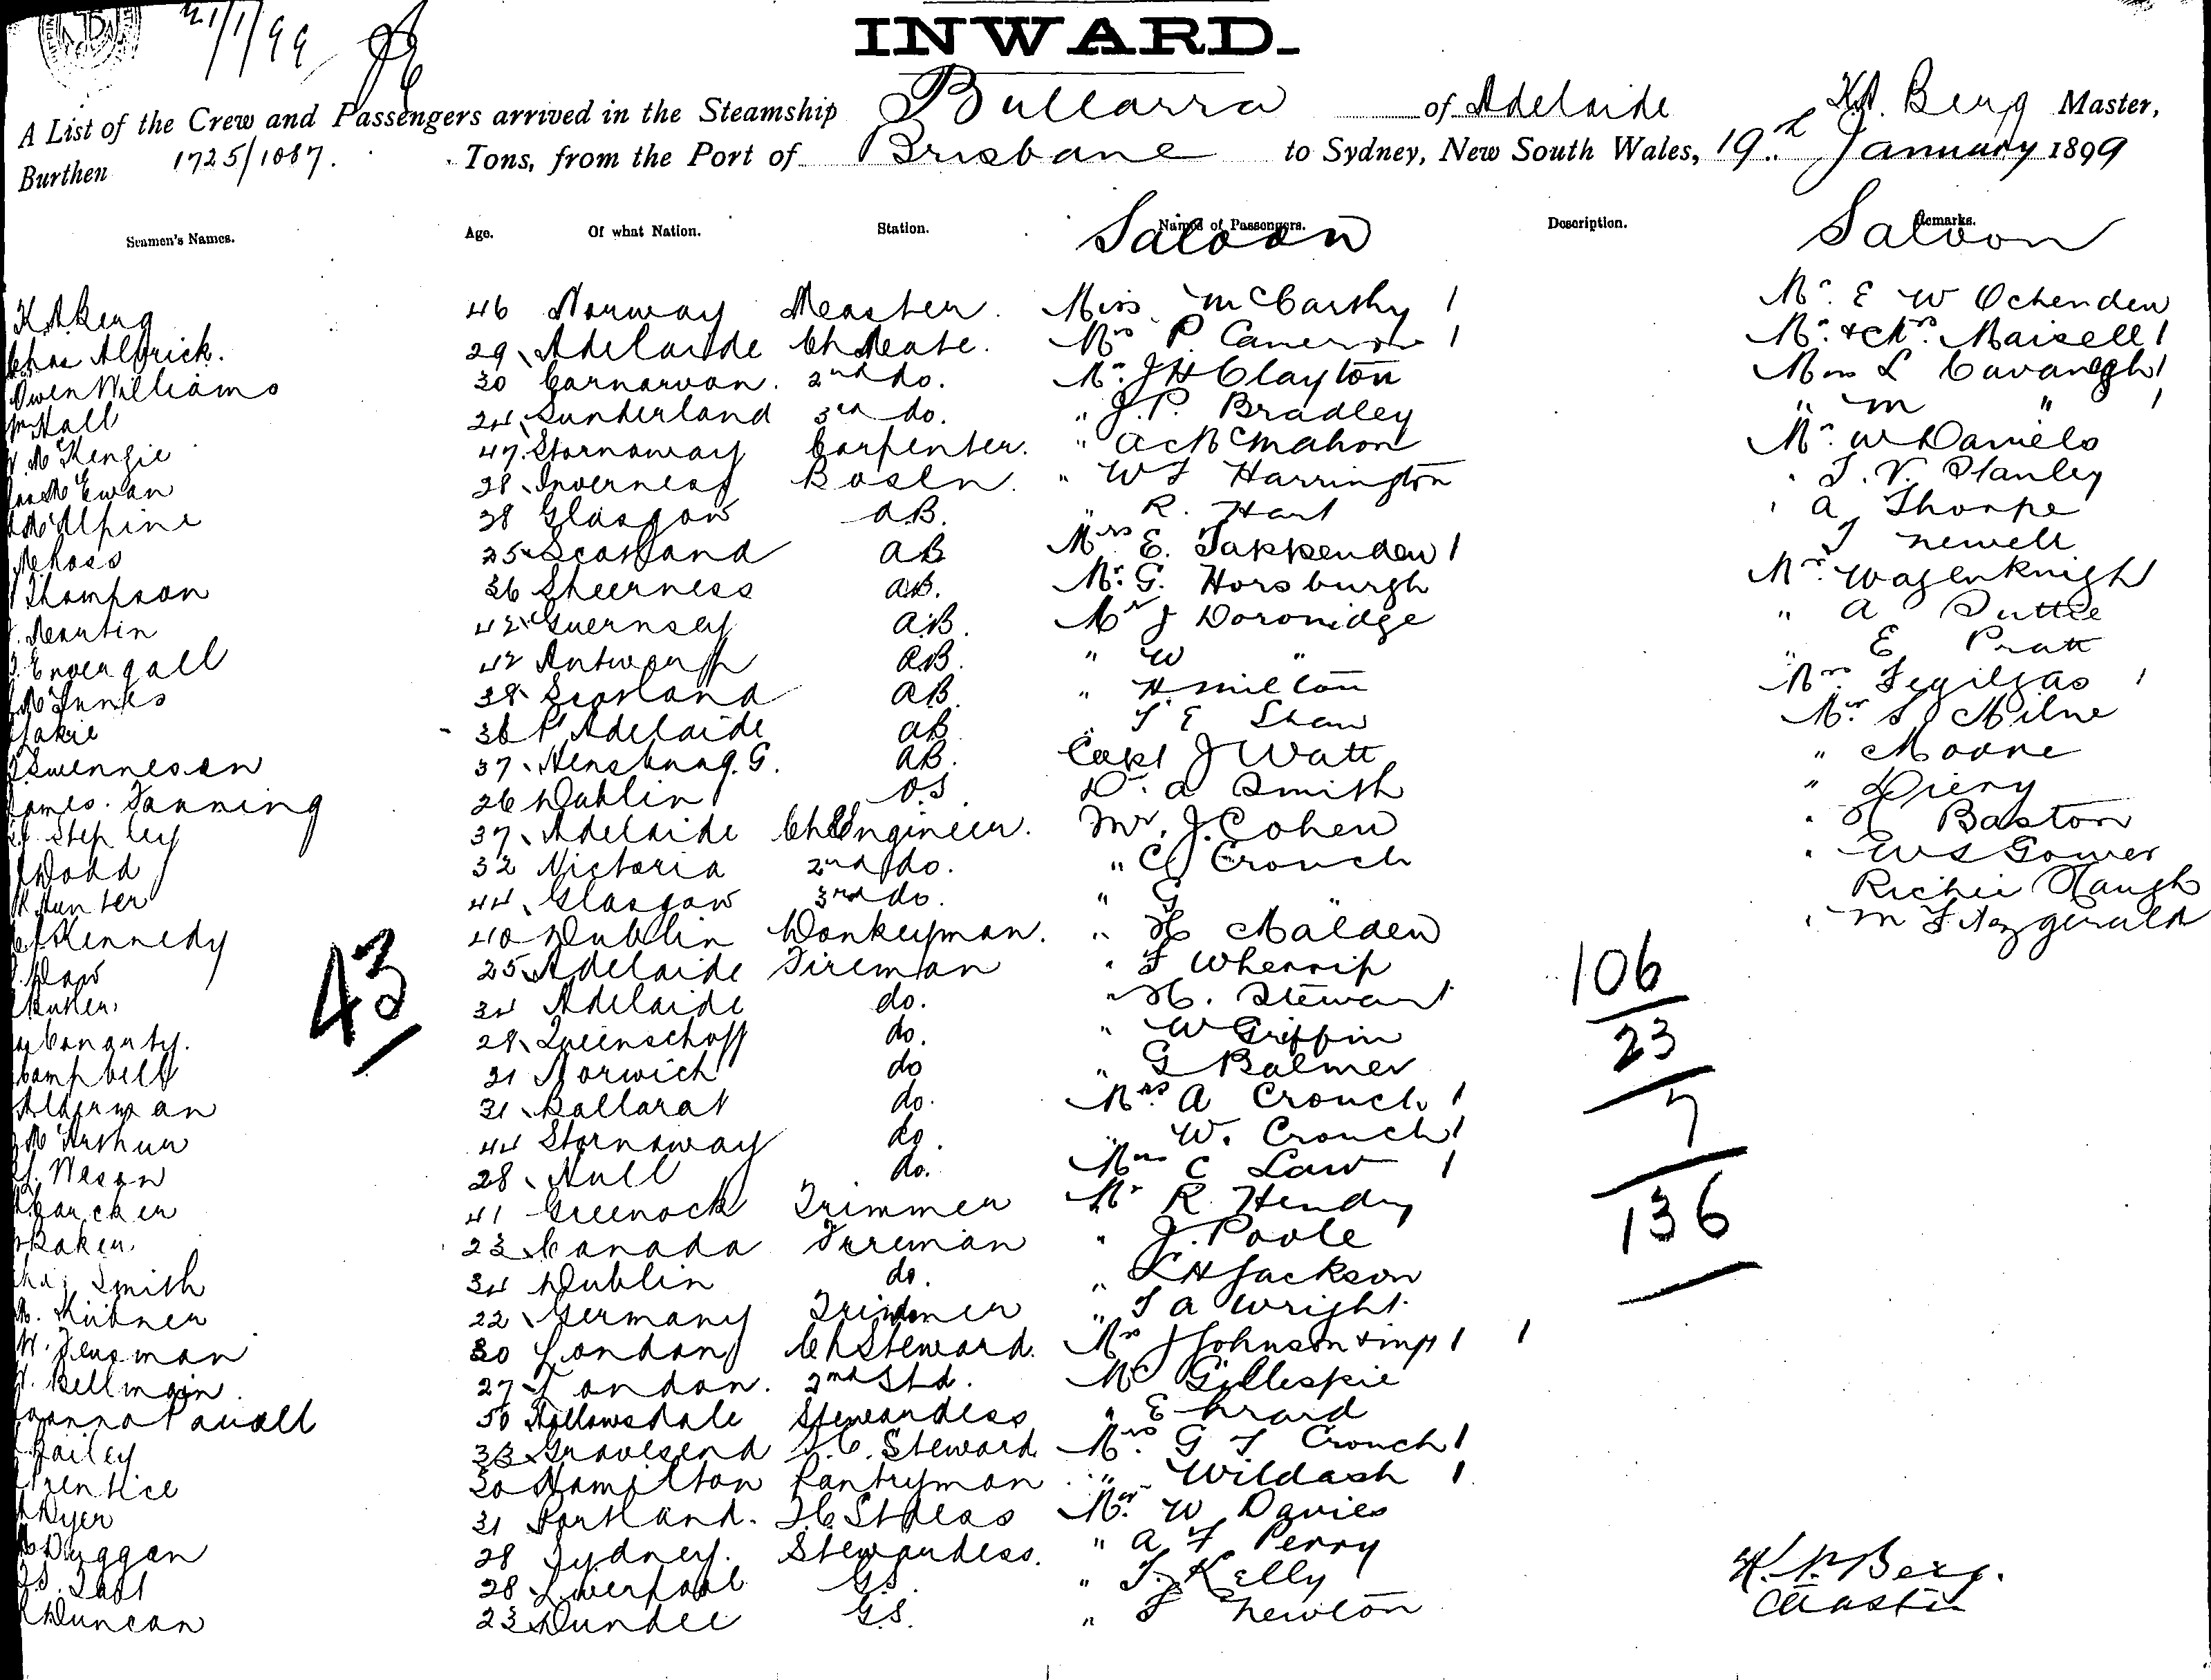 21/1/99
INWARD.
A List of the Crew and Passengers arrived in the Steamship Bullarra of Adelaide K.A. Berg Master,
Burthen 1725/1087. Tons, from the Port of Brisbane to Sydney, New South Wales, 19th January 1899
Seamen's Names. Age. Of what Nation. Station. Names of Passengers. Description. Remarks.
Saloon Saloon
K A Berg 46 Norway Master. Miss McCarthy 1 Mr. E W Ochenden
Chas Albrick. 29 Adelaide Ch Mate. Mrs P. Cameron 1 Mr. & Mrs. Maisell 1
Owen Williams 30 Carnarvon. 2nd do. Mr. J H Clayton Miss L Cavanagh 1
Hall 24 Sunderland 3rd do. " J. P. Bradley " M " 1
McKenzie 47 Stornaway Carpenter. " A McMahon Mr. W Daniels
McEwan 28 Inverness Bosln. " W F Harrington " T. V. Stanley
McAlpine 28 Glasgow AB. " R. Hart " A Thorpe
McRoss 25 Scotland AB Mrs E. Tappenden 1 T Newell
Thompson 36 Sheerness AB. Mr. G. Horsburgh Mr. Wagenknight
Martin 42 Guernsey AB. Mr J Doronidge " A Suttie
42 Antwerp AB. " W " " E Pratt
McInnes 38 Scotland AB. " H Milton Mrs 1
36 Pt Adelaide AB " T E Shaw Mr. S Milne
Swennesen 37 G. AB. Capt J Watt " Moore
James. Fanning 26 Dublin O.S Dr. A Smith "
Stepley 37 Adelaide Ch Engineer. Mr. J. Cohen " H Baston
Dodd 32 Victoria 2nd do. " C Crouch " W S Gower
Hunter 44 Glasgow 3rd do. " G " Richie Haugh
Kennedy 40 Dublin Donkeyman. " H Malden " M Fitzgerald
Daw 25 Adelaide Fireman " F Wherrip
Butler 34 Adelaide do. " H. Stewart
Conanty. 28 Queenschoff do. " W Griffin
Campbell 21 Norwich do " G Balmer
Alderman 31 Ballarat do. Mrs A Crouch 1
McArthur 44 Stornaway do. " W. Crouch 1
Neson 28 Hull do. Mrs C Law 1
41 Greenock Trimmer Mr R. Hendry
Baker 23 Canada Fireman " J. Poole
Smith 34 Dublin do. " L H Jackson
Kübner 22 Germany Trimmer " T A Wright.
30 London Ch Steward. Mrs J Johnson & inft 1 1
Bellmain. 27 London. 2nd Std. Mr Gillespie
50 Stewardess " E
Bailey 33 Gravesend F.C. Steward Mrs G T Crouch 1
Prentice 30 Hamilton Pantryman " Wildash 1
Dyer 31 Portland. Mr. W Davies
Duggan 28 Sydney. Stewardess. " A F Perry
28 Liverpool G.S " T. Kelly
Duncan 23 Dundee G.S. " F Newton
43
106
23
7
136
K. A. Berg.
Master